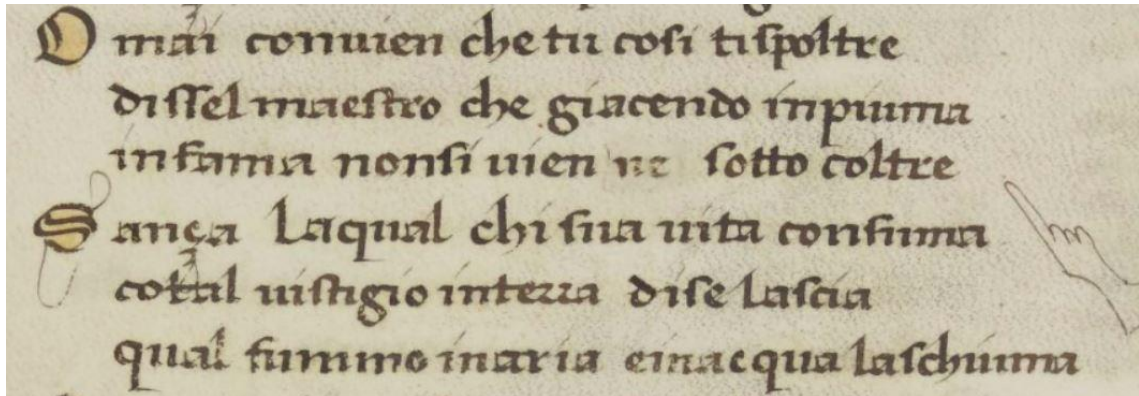 O mai conuien che tu cosi tispoltre
dissel maestro che giacendo inpiuma
infama nonsi uien ne sotto coltre
S ança laqual chi sua uita consuma
cotal uistigio interra dise lascia
qual fummo inaria einacqua laschiuma